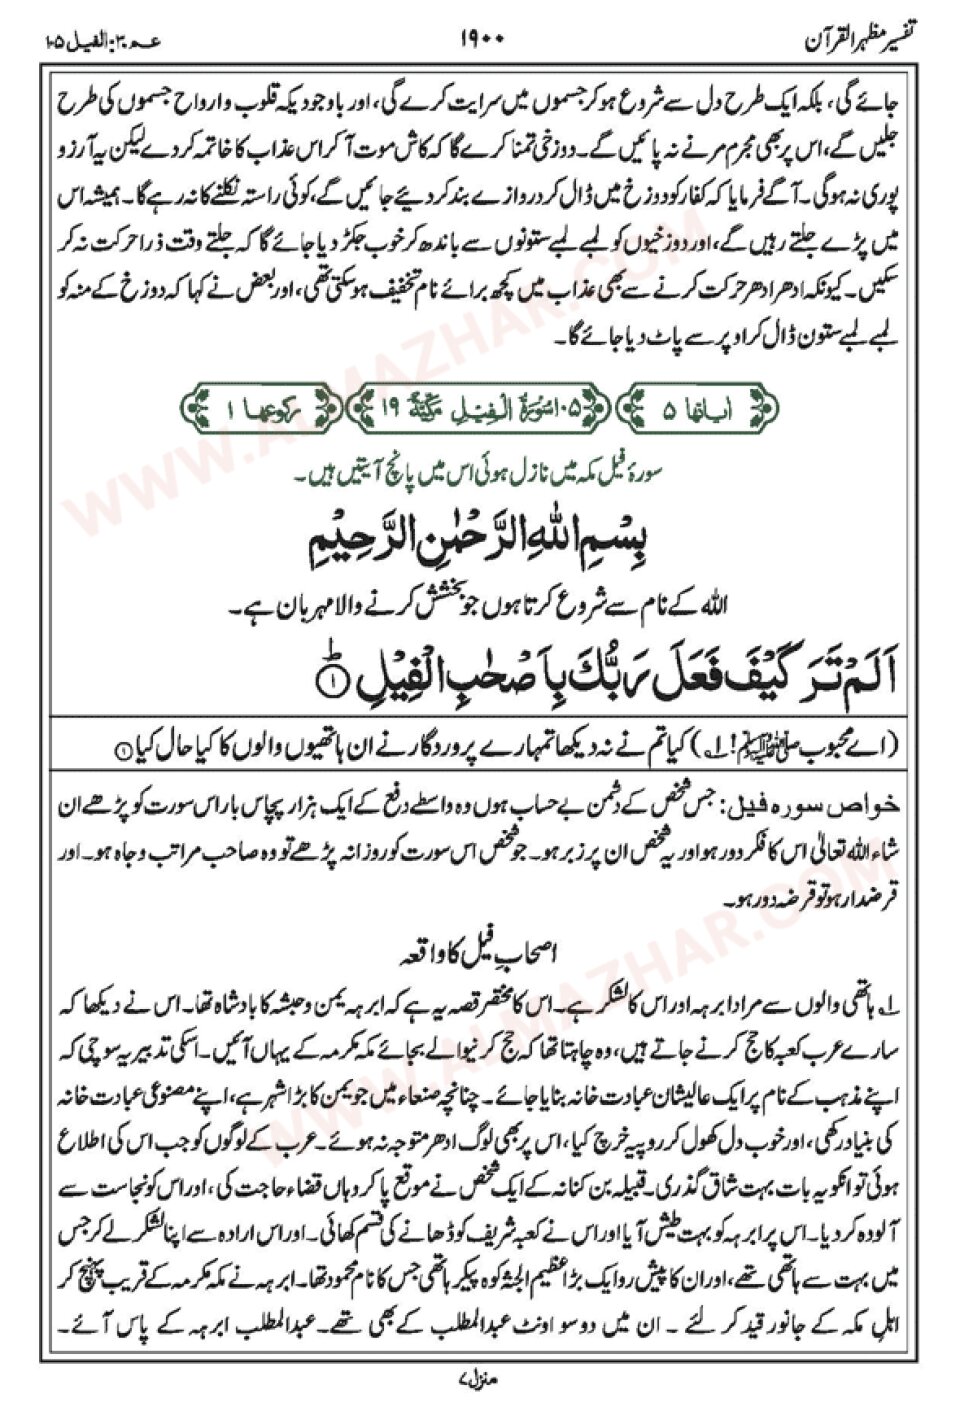 تفسیر مظہر القرآن
۱۹۰۰
عم ۳۰: الفیل ۱۰۵
جائے گی، بلکہ ایک طرح دل سے شروع ہو کر جسموں میں سرایت کرے گی، اور باوجود یکہ قلوب و ارواح جسموں کی طرح
جلیں گے، اس پر بھی مجرم مرنے نہ پائیں گے۔ دوزخی تمنا کرے گا کہ کاش موت آ کر اس عذاب کا خاتمہ کر دے لیکن یہ آرزو
پوری نہ ہو گی۔ آگے فرمایا کہ کفار کو دوزخ میں ڈال کر دروازے بند کر دیے جائیں گے، کوئی راستہ نکلنے کا نہ رہے گا۔ ہمیشہ اس
میں پڑے جلتے رہیں گے، اور دوزخیوں کو لمبے لمبے ستونوں سے باندھ کر خوب جکڑ دیا جائے گا کہ جلتے وقت ذرا حرکت نہ کر
سکیں۔ کیونکہ ادھر ادھر حرکت کرنے سے بھی عذاب میں کچھ برائے نام تخفیف ہو سکتی تھی، اور بعض نے کہا کہ دوزخ کے منہ کو
لمبے لمبے ستون ڈال کر اوپر سے پاٹ دیا جائے گا۔
اٰیاتها ۵
۱۰۵ سُوْرَةُ الْفِيْلِ مَكِّيَّةٌ ۱۹
رکوعها ۱
سورۂ فیل مکہ میں نازل ہوئی اس میں پانچ آیتیں ہیں۔
بِسْمِ اللّٰهِ الرَّحْمٰنِ الرَّحِيْمِ
اللہ کے نام سے شروع کرتا ہوں جو بخشش کرنے والا مہربان ہے۔
اَلَمْ تَرَ كَيْفَ فَعَلَ رَبُّكَ بِاَصْحٰبِ الْفِيْلِ ؕ۱
(اے محبوب صلی اللہ علیہ وسلم! ۱؎) کیا تم نے نہ دیکھا تمہارے پروردگار نے ان ہاتھیوں والوں کا کیا حال کیا ۱
خواص سورہ فیل: جس شخص کے دشمن بے حساب ہوں وہ واسطے دفع کے ایک ہزار پچاس بار اس سورت کو پڑھے ان
شاء اللہ تعالیٰ اس کا فکر دور ہو اور یہ شخص ان پر زبر ہو۔ جو شخص اس سورت کو روزانہ پڑھے تو وہ صاحب مراتب و جاہ ہو۔ اور
قرضدار ہو تو قرضہ دور ہو۔
اصحابِ فیل کا واقعہ
۱؎ ہاتھی والوں سے مراد ابرہہ اور اس کا لشکر ہے۔ اس کا مختصر قصہ یہ ہے کہ ابرہہ یمن و حبشہ کا بادشاہ تھا۔ اس نے دیکھا کہ
سارے عرب کعبہ کا حج کرنے جاتے ہیں، وہ چاہتا تھا کہ حج کرنیوالے بجائے مکہ مکرمہ کے یہاں آئیں۔ اسکی تدبیر یہ سوچی کہ
اپنے مذہب کے نام پر ایک عالیشان عبادت خانہ بنایا جائے۔ چنانچہ صنعاء میں جو یمن کا بڑا شہر ہے، اپنے مصنوعی عبادت خانہ
کی بنیاد رکھی، اور خوب دل کھول کر روپیہ خرچ کیا، اس پر بھی لوگ ادھر متوجہ نہ ہوئے۔ عرب کے لوگوں کو جب اس کی اطلاع
ہوئی تو انکو یہ بات بہت شاق گذری۔ قبیلہ بن کنانہ کے ایک شخص نے موقع پا کر وہاں قضاء حاجت کی، اور اس کو نجاست سے
آلودہ کر دیا۔ اس پر ابرہہ کو بہت طیش آیا اور اس نے کعبہ شریف کو ڈھانے کی قسم کھائی۔ اور اس ارادہ سے اپنا لشکر لے کر جس
میں بہت سے ہاتھی تھے، اور ان کا پیش رو ایک بڑا عظیم الجثہ کوہ پیکر ہاتھی جس کا نام محمود تھا۔ ابرہہ نے مکہ مکرمہ کے قریب پہنچ کر
اہل مکہ کے جانور قید کر لئے ۔ ان میں دو سو اونٹ عبدالمطلب کے بھی تھے۔ عبدالمطلب ابرہہ کے پاس آئے۔
منزل ۷
WWW.ALMAZHAR.COM
WWW.ALMAZHAR.COM